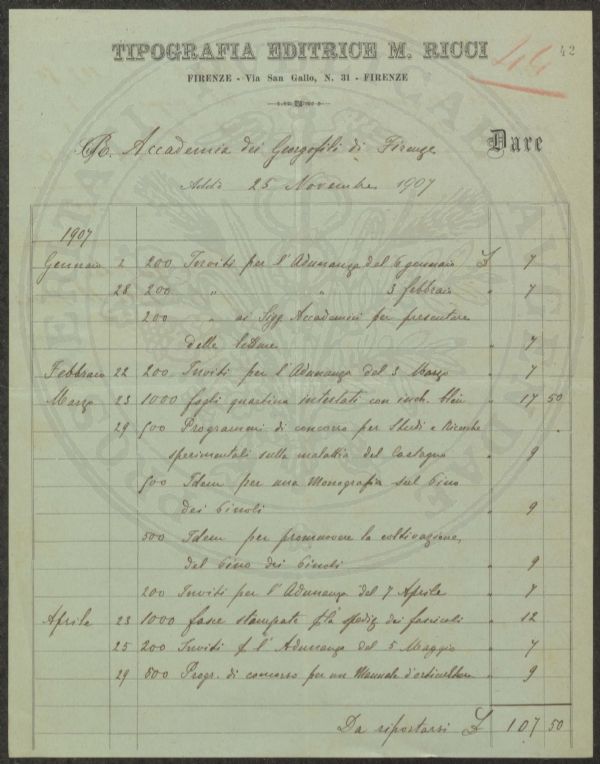 TIPOGRAFIA EDITRICE M. RICCI
42
FIRENZE - Via San Gallo, N. 31 - FIRENZE
R. Accademia dei Georgofili di Firenze Dare
Addì 25 Novembre 1907
1907
Gennaio 2 200 Inviti per l'Adunanza del 6 gennaio £ 7
28 200 " " 3 febbraio " 7
200 " ai Sigg. Accademici per presentare
delle letture " 7
Febbraio 22 200 Inviti per l'Adunanza del 3 Marzo " 7
Marzo 23 1000 fogli quartina intestati con inch. bleu " 17 50
29 500 Programmi di concorso per Studi e Ricerche
sperimentali sulla malattia del Castagno " 9
500 Idem per una Monografia sul Pino
dei Pinoli " 9
500 Idem per promuovere la coltivazione,
del Pino dei Pinoli " 9
200 Inviti per l'Adunanza del 7 Aprile " 7
Aprile 23 1000 fasce stampate p. la spediz. dei fascicoli " 12
25 200 Inviti p. l'Adunanza del 5 Maggio " 7
29 500 Progr. di concorso per un Manuale d'orticoltura " 9
Da riportarsi £ 107 50